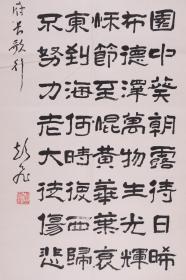 園中葵朝露待日晞
布德澤萬物生光輝
秌節至焜黃華葉衰
東到海何時復西歸
不努力老大徒傷悲
府長歌行
彭飛